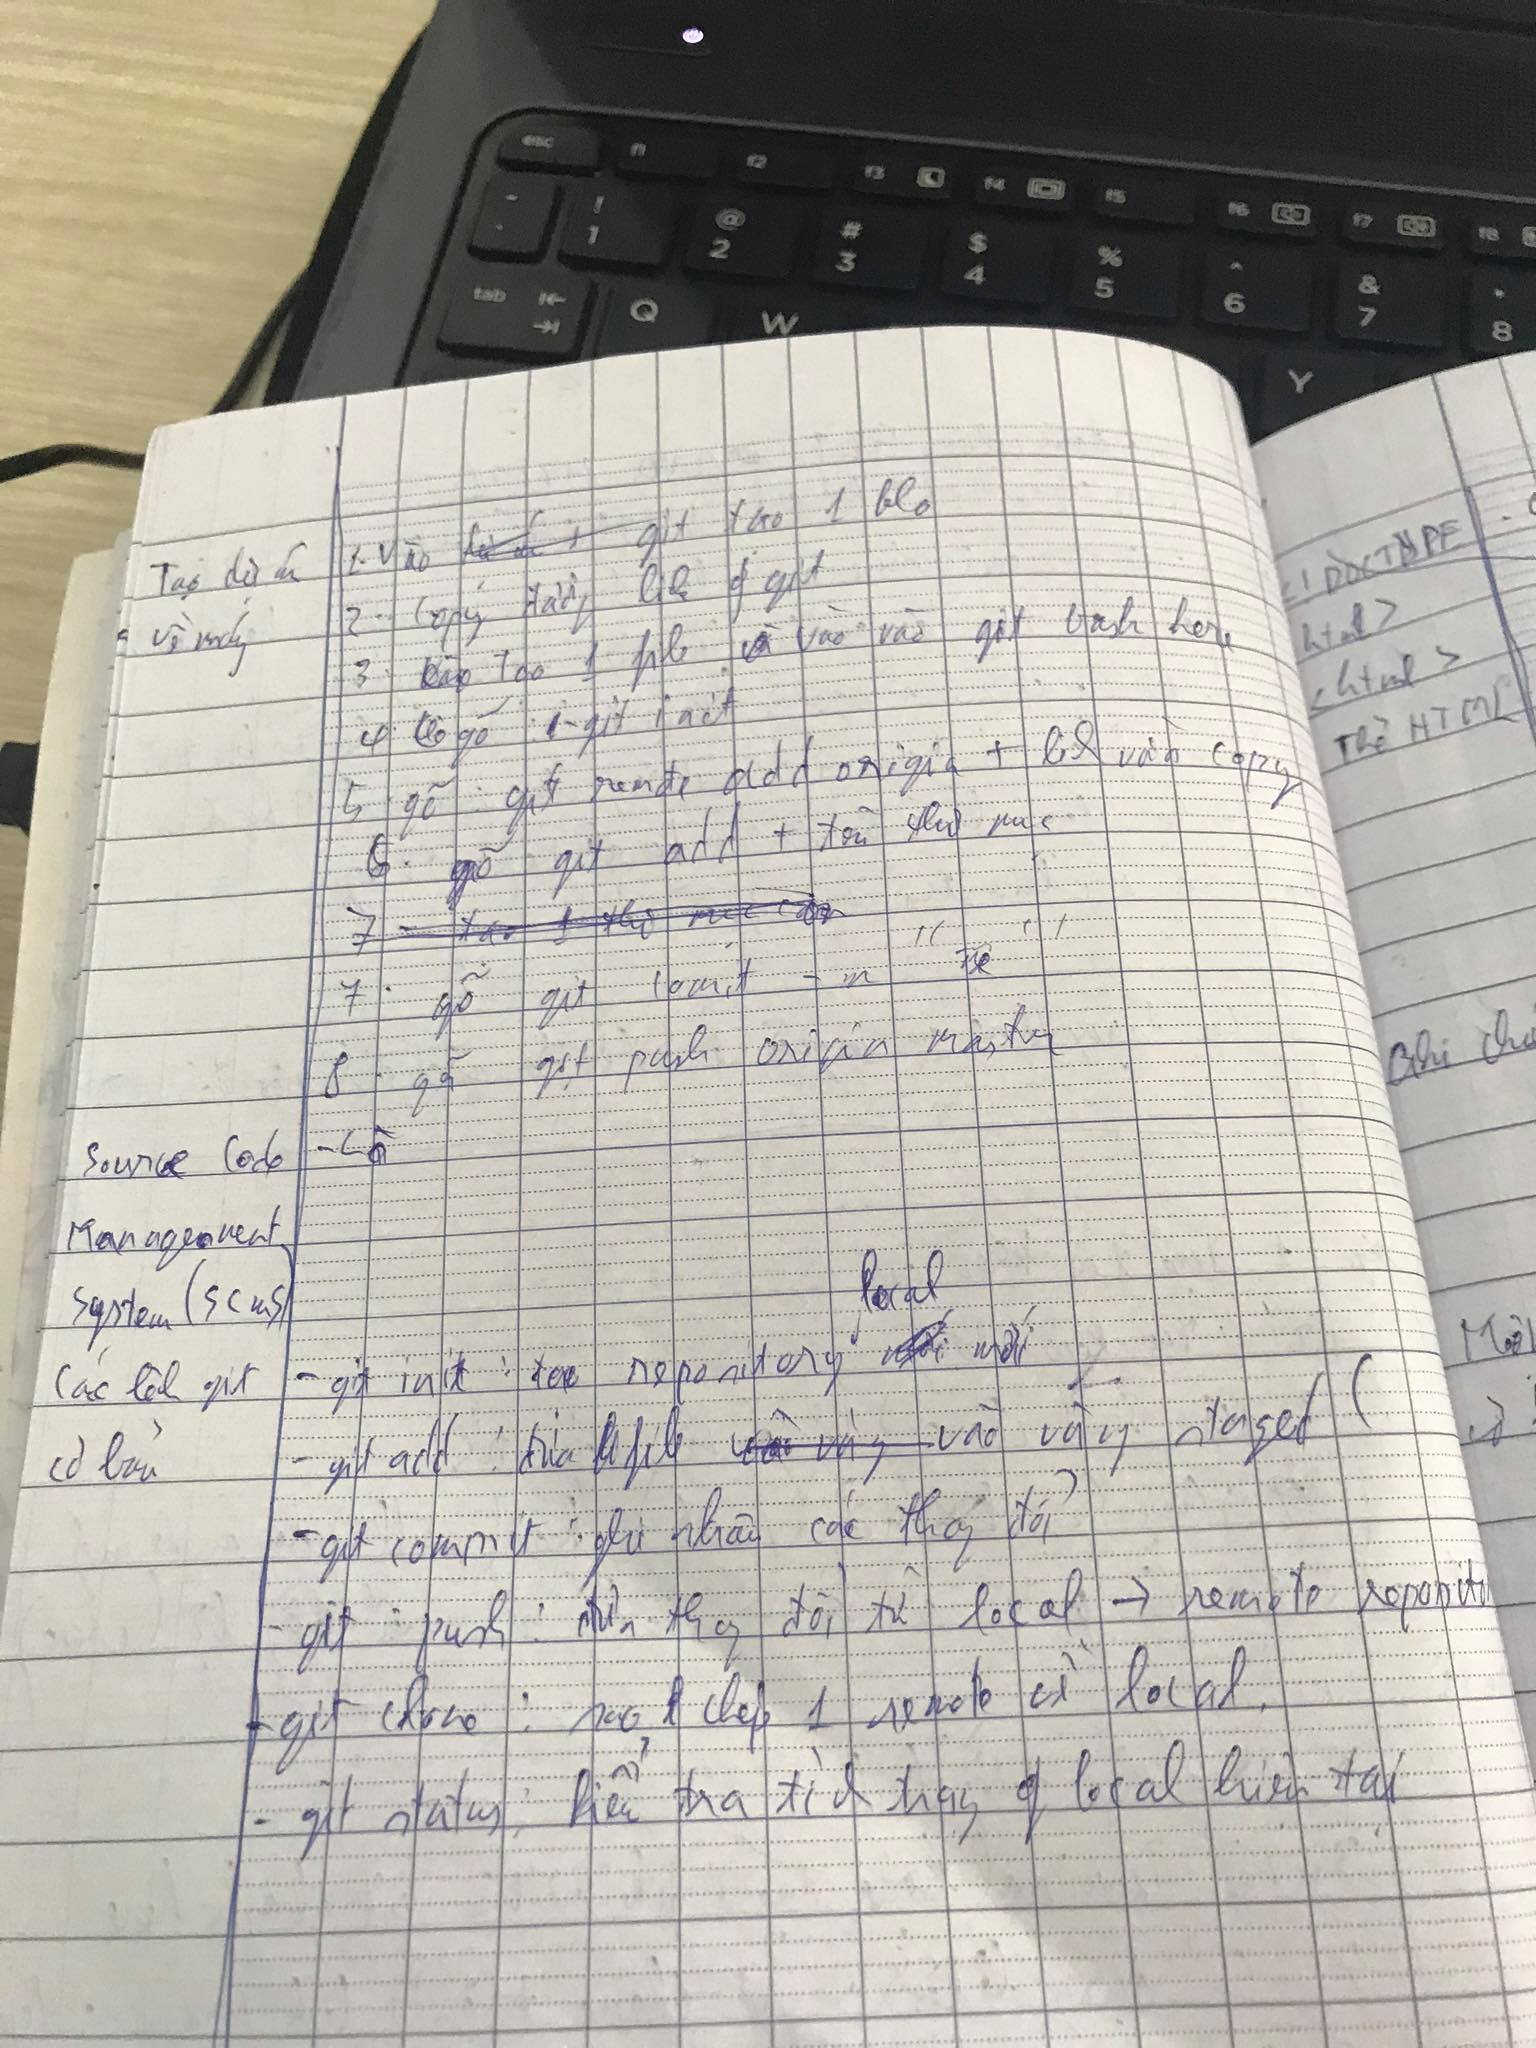 esc f1 f2 f3 f4 f5 f6 f7 f8
! 1 @ 2 # 3 $ 4 % 5 ^ 6 & 7 * 8
tab Q W Y
Tạo dự án
về máy
1. Vào git tạo 1 blo
2. copy đường link ở git
3. Tạo 1 file vào git bash here
4. gõ : git init
5. gõ : git remote add origin + link vừa copy
6. gõ git add + tên thư mục
7. gõ git comit -m " "
8. gõ git push origin master
Source Code
Management
System (SCMS)
local
Các lệnh git
cơ bản
- git init : tạo repository mới
- git add : đưa file vào vùng staged (
- git commit : ghi nhận các thay đổi
- git push : đưa thay đổi từ local → remote reposito
- git clone : sao chép 1 remote về local.
- git status : kiểm tra tình trạng ở local hiện tại
<! DOCTYPE
html>
<html>
thẻ HTML
Ghi chú